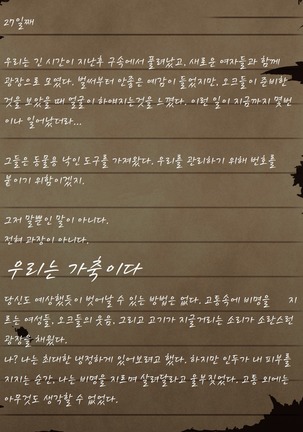 27일째
우리는 긴 시간이 지난후 구속에서 풀려났고, 새로운 여자들과 함께
광장으로 모였다. 벌써부터 안좋은 예감이 들었지만, 오크들이 준비한
것을 보았을 때 얼굴이 하얘지는것을 느꼈다. 이런 일이 지금까지 몇번
이나 일어났더라...
그들은 동물용 낙인 도구를 가져왔다. 우리를 관리하기 위해 번호를
붙이기 위함이겠지.
그저 말뿐인 말이 아니다.
전혀 과장이 아니다.
우리는 가축이다
당신도 예상했듯이 벗어날 수 있는 방법은 없다. 고통속에 비명을 지
르는 여성들, 오크들의 웃음, 그리고 고기가 지글거리는 소리가 소란스런
광장을 채웠다.
나? 나는 최대한 냉정하게 있어보려고 했다. 하지만 인두가 내 피부를
지지는 순간, 나는 비명을 지르며 살려달라고 울부짖었다. 고통 외에는
아무것도 생각할 수 없었다.